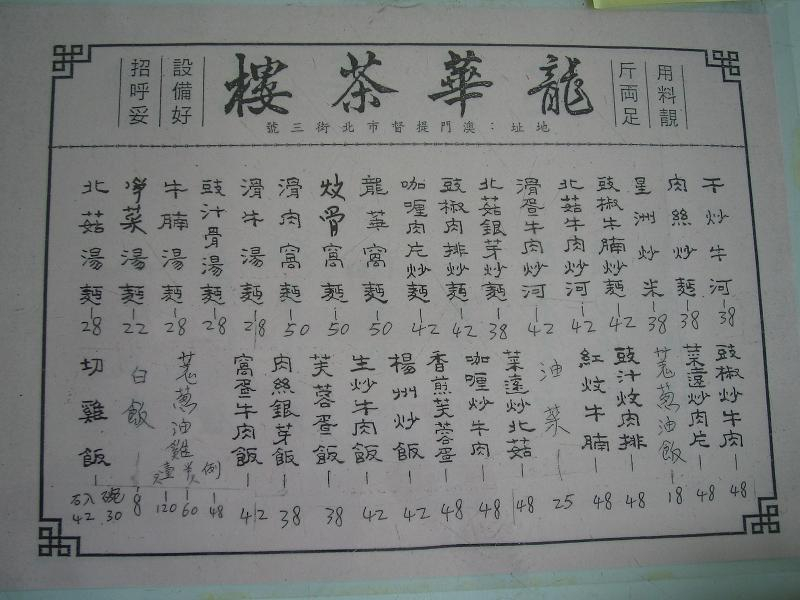 用料靚
斤両足
龍華茶樓
地址：澳門提督市北街三號
設備好
招呼妥
干炒牛河 38
肉絲炒麵 38
星洲炒米 38
豉椒牛腩炒麵 42
北菇牛肉炒河 42
滑蛋牛肉炒河 42
北菇銀芽炒麵 38
豉椒肉排炒麵 42
咖喱肉片炒麵 42
龍華窩麵 50
炆骨窩麵 50
滑肉窩麵 50
滑牛湯麵 28
豉汁骨湯麵 28
牛腩湯麵 28
淨菜湯麵 22
北菇湯麵 28
豉椒炒牛肉 48
菜遠炒肉片 48
羗葱油飯 18
豉汁炆肉排 48
紅炆牛腩 48
油菜 25
菜遠炒北菇 48
咖喱炒牛肉 48
香煎芙蓉蛋 48
楊州炒飯 42
生炒牛肉飯 42
芙蓉蛋飯 38
肉絲銀芽飯 38
窩蛋牛肉飯 42
羗葱油雞 例 48 60 120
白飯 8
切雞飯 碗 30 42